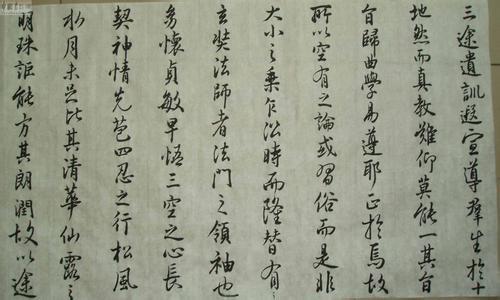 三途遺訓遐宣導群生於十
地然而真教難仰莫能一其旨
旨歸曲學易遵耶正於焉故
所以空有之論或習俗而是非
大小之乘乍沿時而隆替有
玄奘法師者法門之領袖也
幼懷貞敏早悟三空之心長
契神情先苞四忍之行松風
水月未足比其清華仙露
明珠詎能方其朗潤故以途